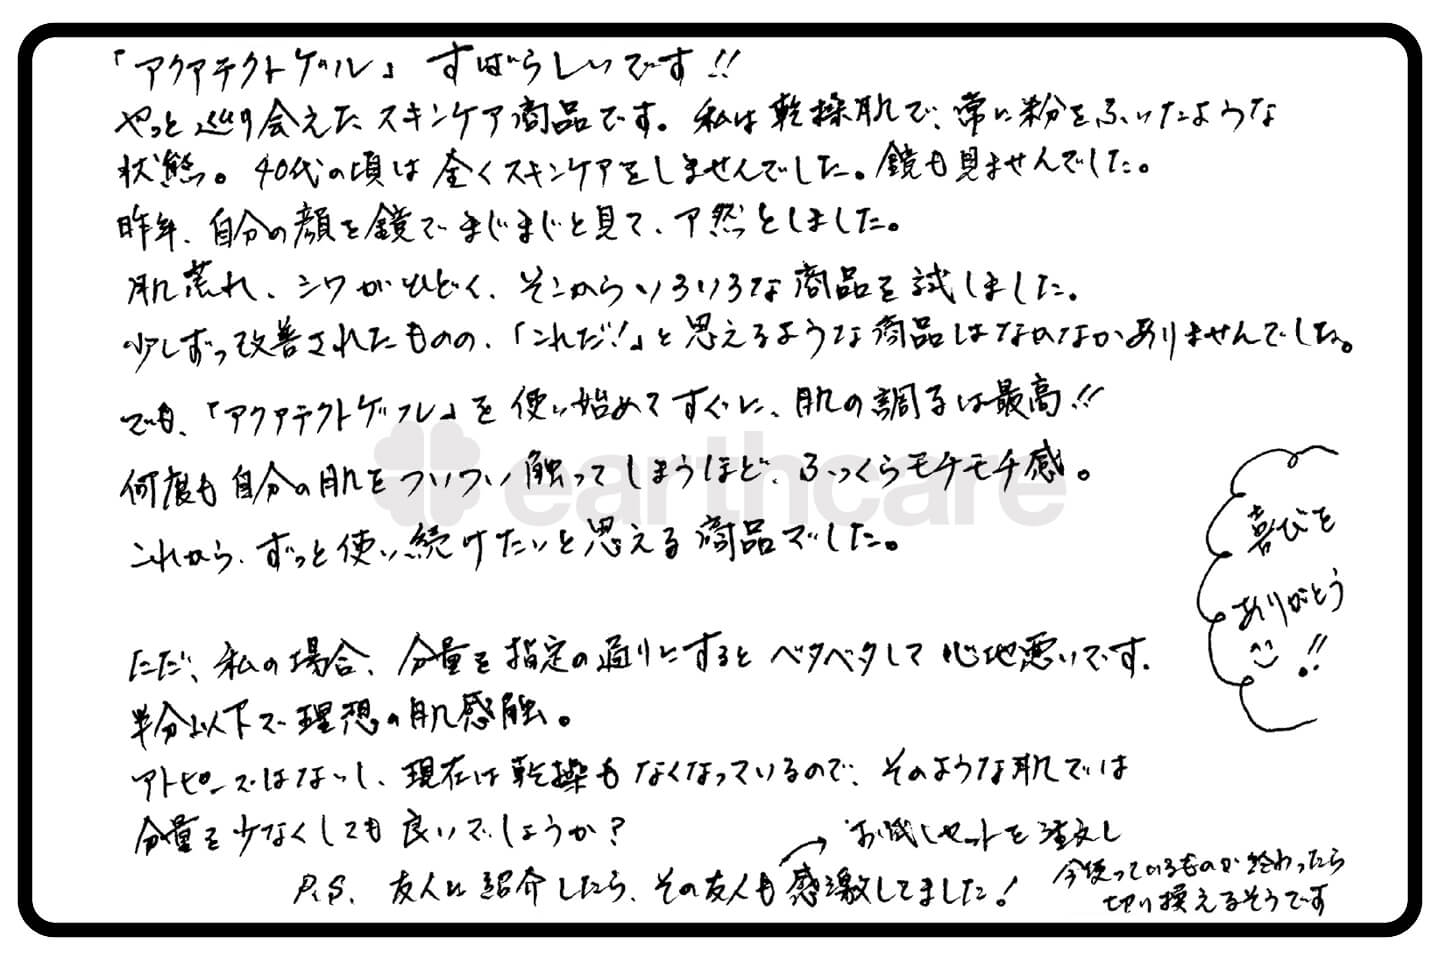 「アクアテクトゲル」 すばらしいです!!
やっと巡り会えたスキンケア商品です。私は乾燥肌で、常に粉をふいたような
状態。40代の頃は全くスキンケアをしませんでした。鏡も見ませんでした。
昨年、自分の顔を鏡でまじまじと見て、ア然としました。
肌荒れ、シワがひどく、そこからいろいろな商品を試しました。
少しずつ改善されたものの、「これだ!」と思えるような商品はなかなかありませんでした。
でも、「アクアテクトゲル」を使い始めてすぐに、肌の調子は最高!!
何度も自分の肌をついつい触ってしまうほど、ふっくらモチモチ感。
これから、ずっと使い続けたいと思える商品でした。
earthcare
喜びを
ありがとう
!!
ただ、私の場合、分量を指定の通りにするとベタベタして心地悪いです。
半分以下で理想の肌感触。
アトピーではないし、現在は乾燥もなくなっているので、そのような肌では
分量を少なくしても良いでしょうか?
P.S. 友人に紹介したら、その友人も感激してました!
→お試しセットを注文し
今使っているものが終わったら
切り換えるそうです